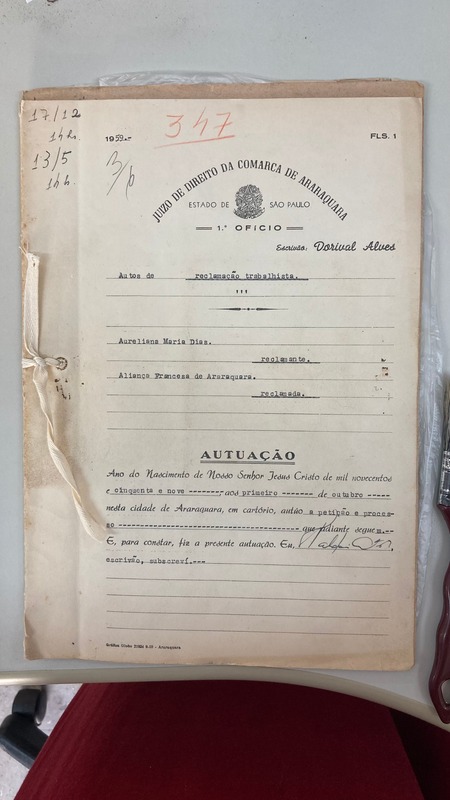 17/12
14h.
13/5
14h.
1959.-
347
FLS. 1
JUIZO DE DIREITO DA COMARCA DE ARARAQUARA
ESTADO DE SÃO PAULO
1.º OFÍCIO
Escrivão, Dorival Alves
Autos de reclamação trabalhista.
Aureliana Maria Dias.
reclamante.
Aliança Francesa de Araraquara.
reclamada.
AUTUAÇÃO
Ano do Nascimento de Nosso Senhor Jesus Cristo de mil novecentos
e cinquenta e nove --------, aos primeiro ------- de outubro -----
nesta cidade de Araraquara, em cartório, autúo a petição e proces-
so ---------------------------------------- que adiante seguem.--
E, para constar, fiz a presente autuação. Eu,
escrivão, subscreví.---